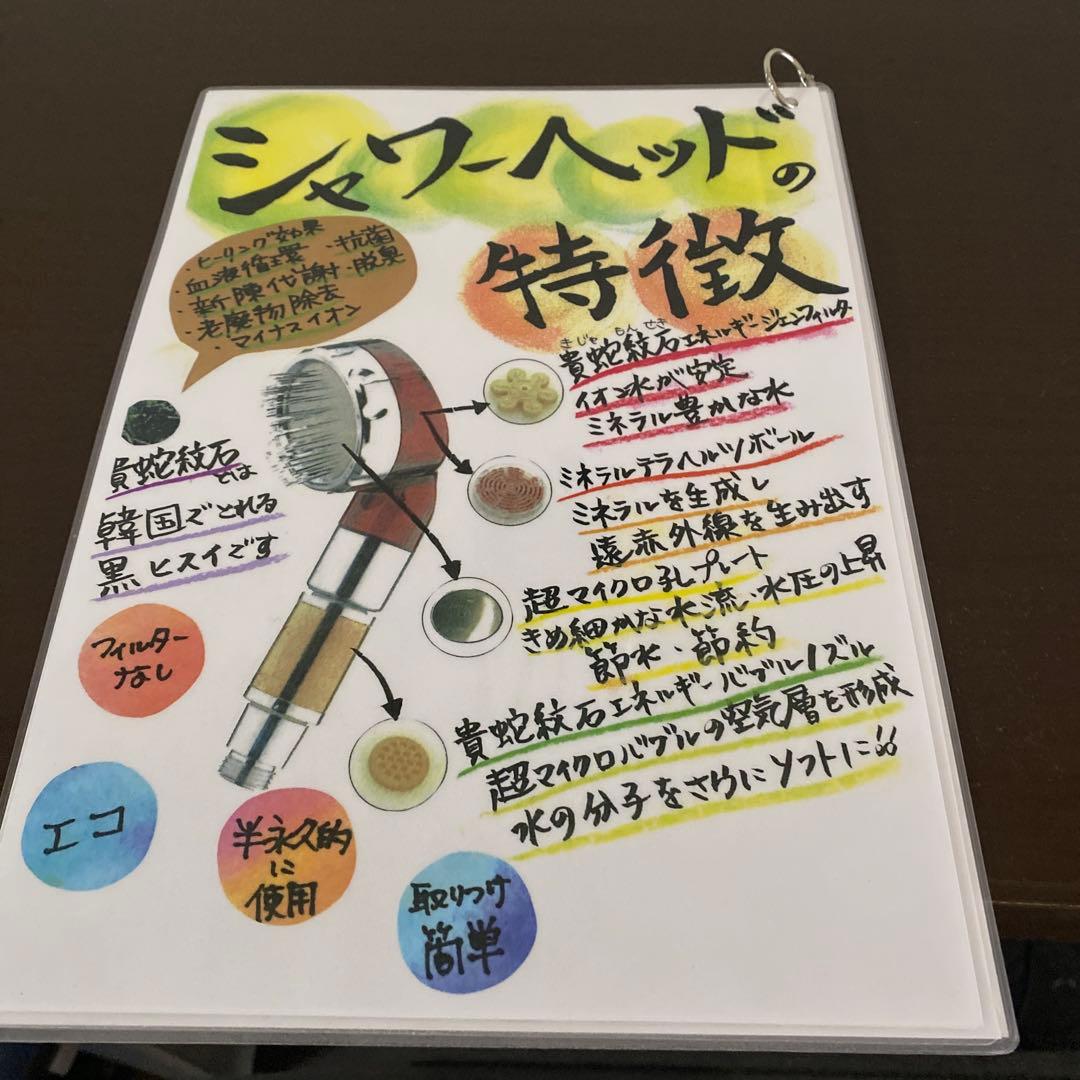 シャワーヘッドの
特徴
・ヒーリング効果
・血液循環 ・抗菌
・新陳代謝 ・脱臭
・老廃物除去
・マイナスイオン
きじゃもんせき
貴蛇紋石エネルギージェンフィルター
イオン水が安定
ミネラル豊かな水
ミネラルテラヘルツボール
ミネラルを生成し
遠赤外線を生み出す
超マイクロ孔プレート
きめ細かな水流・水圧の上昇
節水・節約
貴蛇紋石エネルギーバブルノズル
超マイクロバブルの空気層を形成
水の分子をさらにソフトに!!
貴蛇紋石とは
韓国でとれる
黒ヒスイです
フィルター
なし
エコ
半永久的
に
使用
取りつけ
簡単